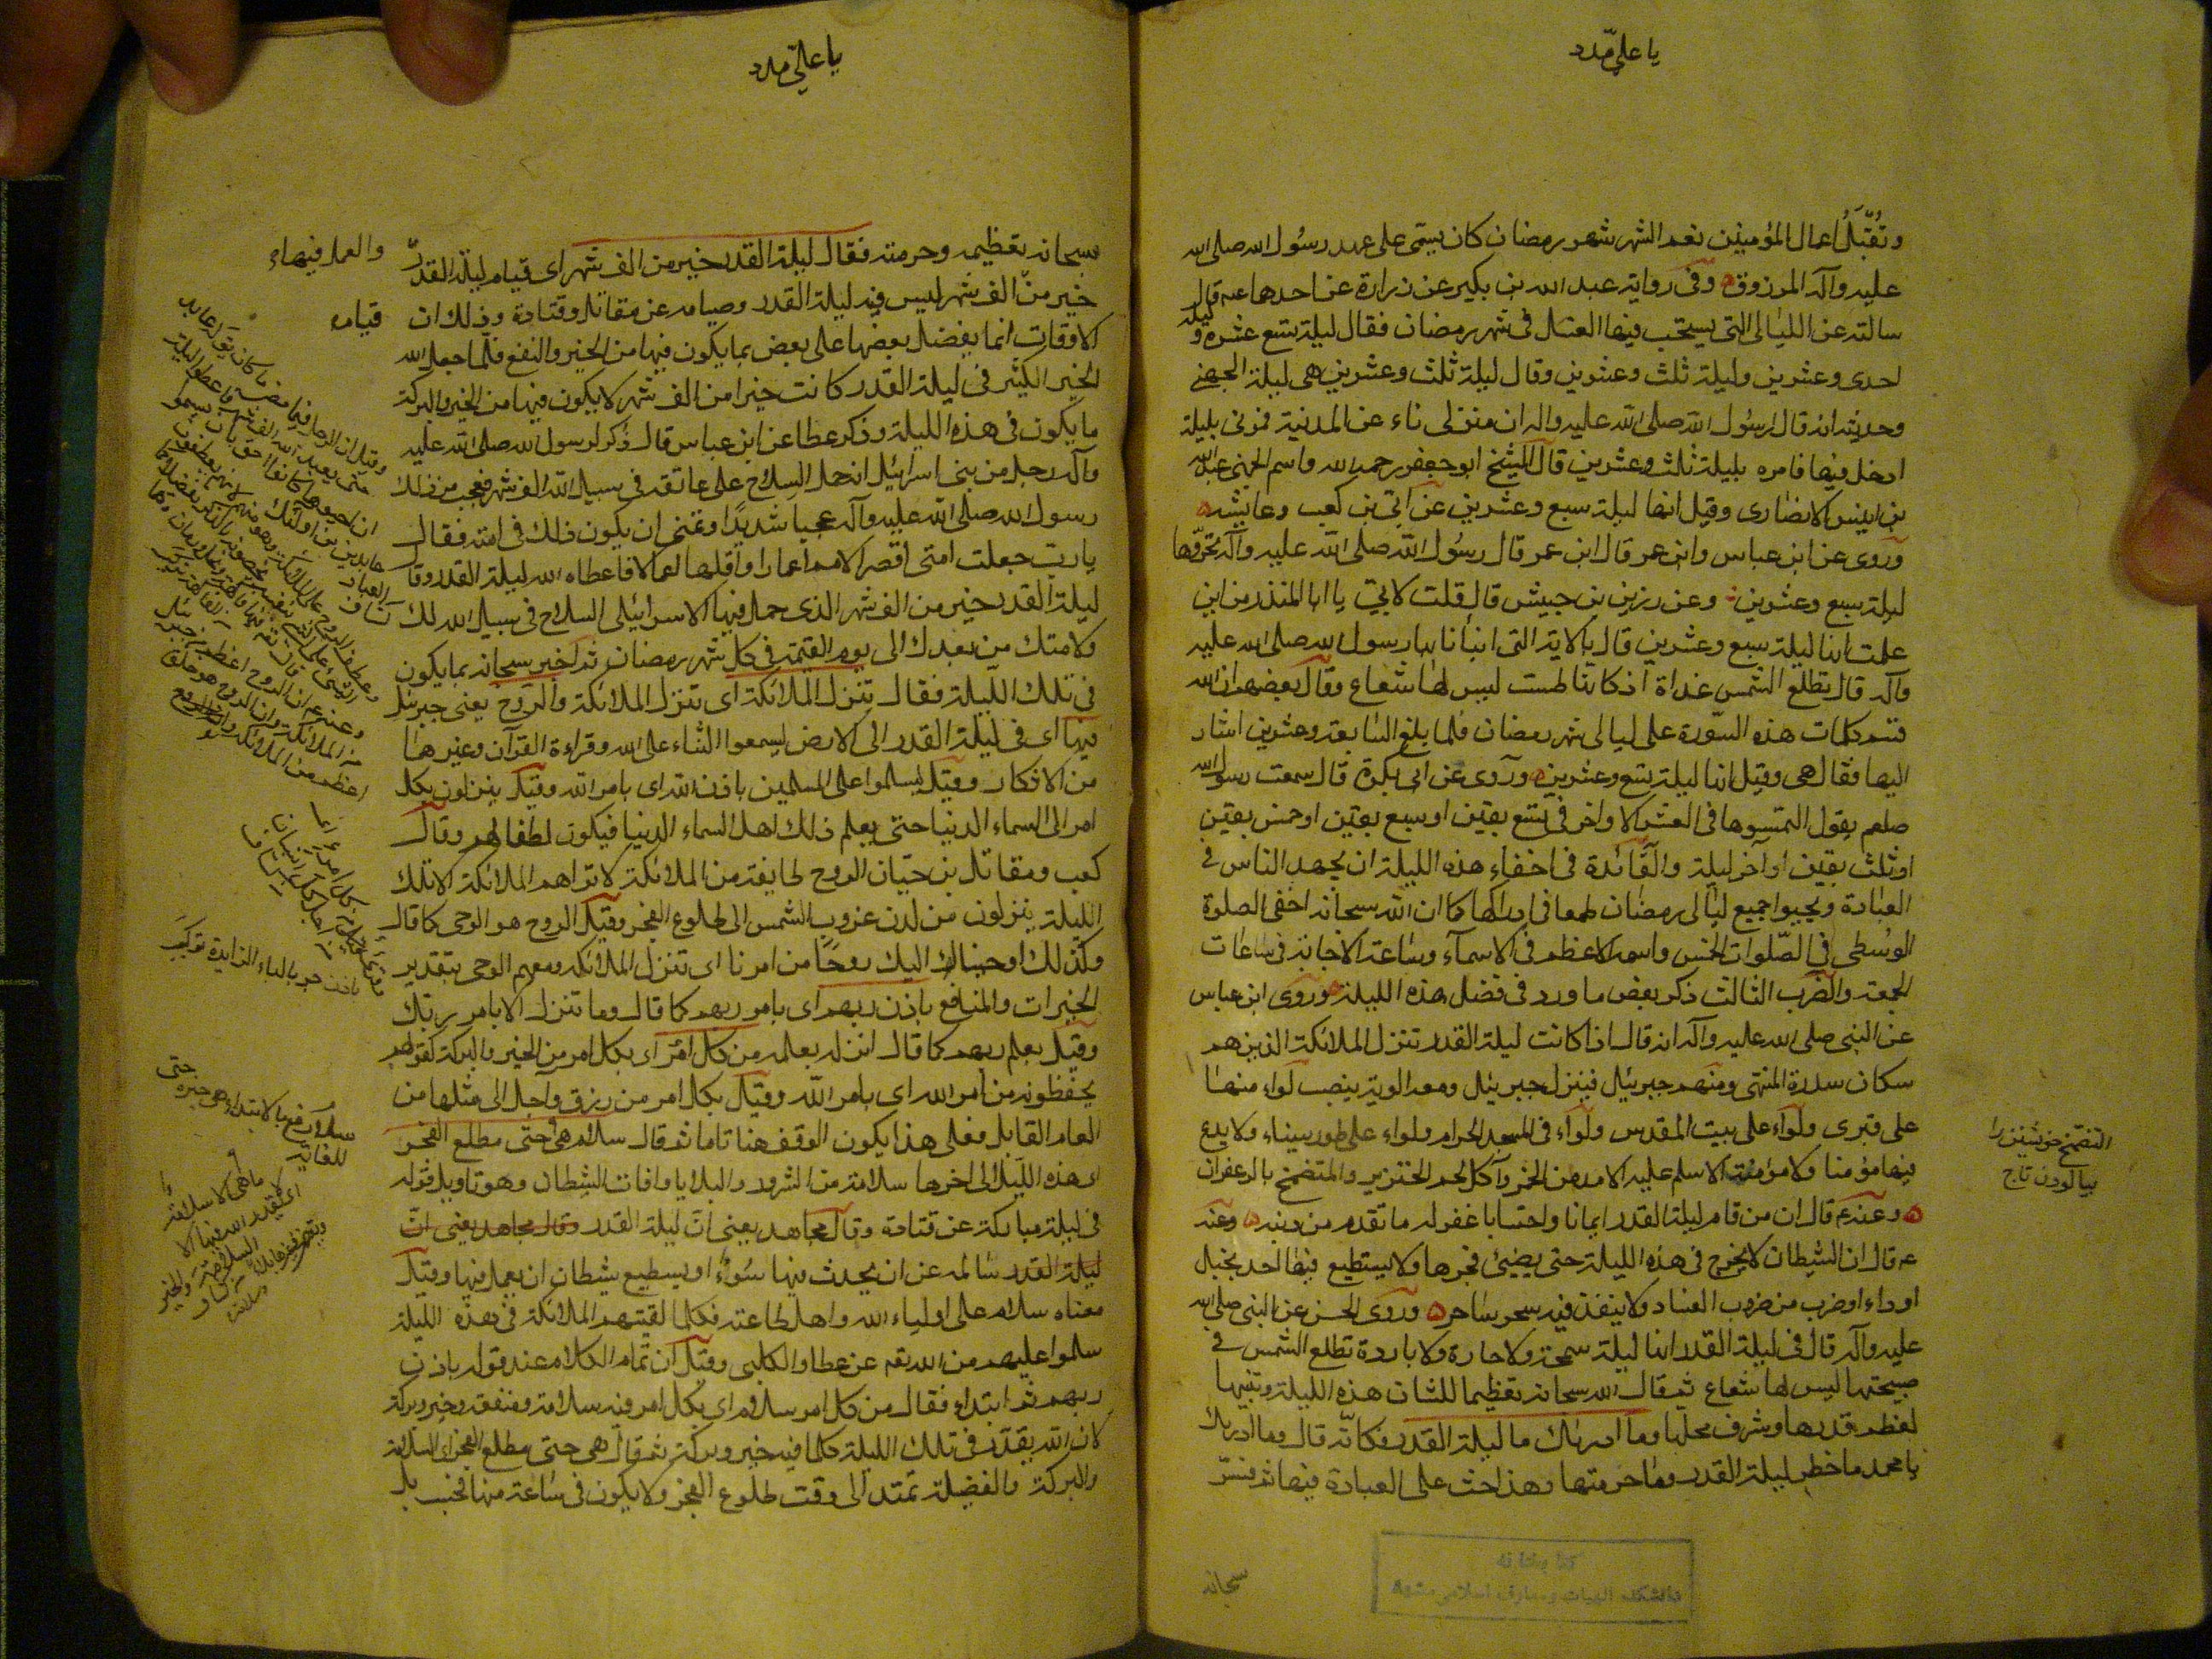 يا علي مدد
وتقبل اعمال المؤمنين نعم الشهر شهر رمضان كان يسمى على عهد رسول الله صلى الله
عليه وآله المرزوق وفى رواية عبد الله بن بكير عن زرارة عن احدهما عه قال
سالته عن الليالى التى يستحب فيها الغسل فى شهر رمضان فقال ليلة تسع عشره و ليلة
احدى وعشرين وليلة ثلث وعشرين وقال ليلة ثلث وعشرين هى ليلة الجهنى
وحديثه انه قال لرسول الله صلى الله عليه واله ان منزلى ناء عن المدينة فمرنى بليلة
ادخل فيها فامره بليلة ثلث وعشرين قال الشيخ ابو جعفر رحمه الله واسم الجهنى عبد الله
بن انيس الانصارى وقيل انها ليلة سبع وعشرين عن ابى بن كعب وعايشه
وروى عن ابن عباس وابن عمر قال ابن عمر قال رسول الله صلى الله عليه وآله تحروها
ليلة سبع وعشرين وعن رزين بن حبيش قال قلت لابى يا ابا المنذر من اين
علمت انها ليلة سبع وعشرين قال بالاية التى انبأنا بها رسول الله صلى الله عليه
وآله قال تطلع الشمس غداة اذ كانها طست ليس لها شعاع وقال بعضهم ان الله
قسم كلمات هذه السورة على ليالى شهر رمضان فلما بلغ السابعة وعشرين اشار
اليها فقال هى وقيل انها ليلة تسع وعشرين وروى عن ابى بكرة قال سمعت رسول الله
صلعم يقول التمسوها فى العشر الاواخر فى تسع بقين او سبع بقين او خمس بقين
او ثلث بقين او آخر ليلة والفائدة فى اخفاء هذه الليلة ان يجهد الناس فى
العبادة ويحيوا جميع ليالى رمضان طمعا فى ادراكها كما ان الله سبحانه اخفى الصلوة
الوسطى فى الصلوات الخمس واسمه الاعظم فى الاسمآء وساعة الاجابة فى ساعات
الجمعة والضرب الثالث ذكر بعض ما ورد فى فضل هذه الليلة وروى ابن عباس
عن النبى صلى الله عليه وآله انه قال اذا كانت ليلة القدر تنزل الملائكة الذين هم
سكان سدرة المنتهى ومنهم جبرئيل فينزل جبرئيل ومعه الوية ينصب لواء منها
على قبرى ولواء على بيت المقدس ولواء فى المسجد الحرام ولواء على طور سيناء ولا يدع
فيها مؤمنا ولا مؤمنة الا سلم عليه الا مدمن الخمر وآكل لحم الخنزير والمتضمخ بالزعفران
وعنه ع قال ان من قام ليلة القدر ايمانا واحتسابا غفر له ما تقدم من ذنبه وعنه
عه قال ان الشيطان لا يخرج فى هذه الليلة حتى يضيئ فجرها ولا يستطيع فيها احد بخبل
او داء او ضرب من ضروب الفساد ولا ينفذ فيه سحر ساحر وروى الحسن عن النبى صلى الله
عليه وآله قال فى ليلة القدر انها ليلة سمحة ولا حارة ولا باردة تطلع الشمس فى
صبيحتها ليس لها شعاع ثم قال الله سبحانه تعظيما للشان هذه الليلة وتنبيها
لعظم قدرها وشرف محلها وما ادريك ما ليلة القدر فكانه قال وما ادريك
يا محمد ما خطر ليلة القدر وما حرمتها وهذا حث على العبادة فيها ثم فسر
سبحانه
التضمخ خويشتن را
بيالودن تاج
كتابخانه
دانشكده الهيات ومعارف اسلامى مشهد
يا علي مدد
سبحانه تعظيمه وحرمته فقال ليلة القدر خير من الف شهر اى قيام ليلة القدر
خير من الف شهر ليس فيه ليلة القدر وصيامه عن مقاتل وقتادة وذلك ان
الاوقات انما يفضل بعضها على بعض بما يكون فيها من الخير والنفع فلما جعل الله
الخير الكثير فى ليلة القدر كانت خيرا من الف شهر لا يكون فيها من الخير والبركة
ما يكون فى هذه الليلة وذكر عطا عن ابن عباس قال ذكر لرسول الله صلى الله عليه
وآله رجل من بنى اسرائيل انه حمل السلاح على عاتقه فى سبيل الله الف شهر فعجب من ذلك
رسول الله صلى الله عليه وآله عجبا شديدا وتمنى ان يكون ذلك فى امته فقال
يا رب جعلت امتى اقصر الامم اعمارا واقلها اعمالا فاعطاه الله ليلة القدر وقا
ليلة القدر خير من الف شهر الذى حمل فيها الاسرائيلى السلاح فى سبيل الله لك
ولامتك من بعدك الى يوم القيمة فى كل شهر رمضان ثم اخبر سبحانه بما يكون
فى تلك الليلة فقال تنزل الملائكة اى تنزل الملائكة والروح يعنى جبرئيل
فيها اى فى ليلة القدر الى الارض ليسمعوا الثناء على الله وقراءة القرآن وغيرها
من الاذكار وقيل ليسلموا على المسلمين باذن الله اى بامر الله وقيل ينزلون بكل
امر الى السماء الدنيا حتى يعلم ذلك اهل السماء الدنيا فيكون لطفا لهم وقال
كعب ومقاتل بن حيان الروح طايفة من الملائكة لا تراهم الملائكة الا تلك
الليلة ينزلون من لدن غروب الشمس الى طلوع الفجر وقيل الروح هو الوحى كما قال
وكذلك اوحينا اليك روحا من امرنا اى تنزل الملائكة ومعهم الوحى بتقدير
الخيرات والمنافع باذن ربهم اى بامر ربهم كما قال وما تنزل الا بامر ربك
وقيل بعلم ربهم كما قال انزله بعلمه من كل امر اى بكل امر من الخير والبركة كقوله
يحفظونه من امر الله اى بامر الله وقيل بكل امر من رزق واجل الى مثلها من
العام القابل فعلى هذا يكون الوقف هنا تاما ثم قال سلام هى حتى مطلع الفجر
اى هذه الليلة الى اخرها سلامة من الشرور والبلايا وافات الشيطان وهو تاويل قوله
فى ليلة مباركة عن قتادة وقال مجاهد يعنى ان ليلة القدر وقال مجاهد يعنى ان
ليلة القدر سالمة عن ان يحدث فيها سوء او يسطيع شيطان ان يعمل فيها وقيل
معناه سلام على اولياء الله واهل طاعته فكلما لقيتهم الملائكة فى هذه الليلة
سلموا عليهم من الله تعه عن عطا والكلبى وقيل ان تمام الكلام عند قوله باذن
ربهم ثم ابتداء فقال من كل امر سلام اى بكل امر فيه سلامة ومنفعة وخير وبركة
لان الله يقدر فى تلك الليلة كلما فيه خير وبركة ثم قال هى حتى مطلع الفجر اى السلامة
والبركة والفضيلة تمتد الى وقت طلوع الفجر ولا يكون فى ساعة منها فحسب بل
والعمل فيها
قيامه